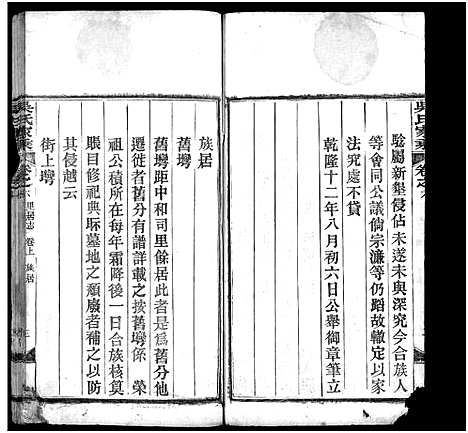 吳氏家乘
卷之六
驗屬新墾侵佔未遂未與深究今合族人
等會同公議倘宗濂等仍蹈故轍定以家
法究處不貸
乾隆十二年八月初六日公舉御章筆立
族居
舊塆
舊塆距中和司里餘居此者是爲舊分其
遷徙者舊分有譜詳載之按舊塆係 榮
祖公積所在每年霜降後一日合族核算
賬目修祀典塚墓地之類廢者補之以防
其侵越云
街上塆
吳氏家乘
卷之六
里居志 卷上 族居
三